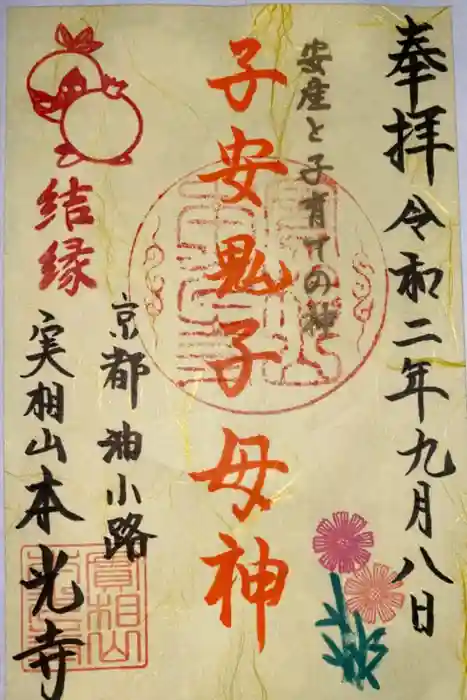 奉拝 令和二年九月八日
安産と子育ての神
子安鬼子母神
結縁
京都 油小路
実相山本光寺